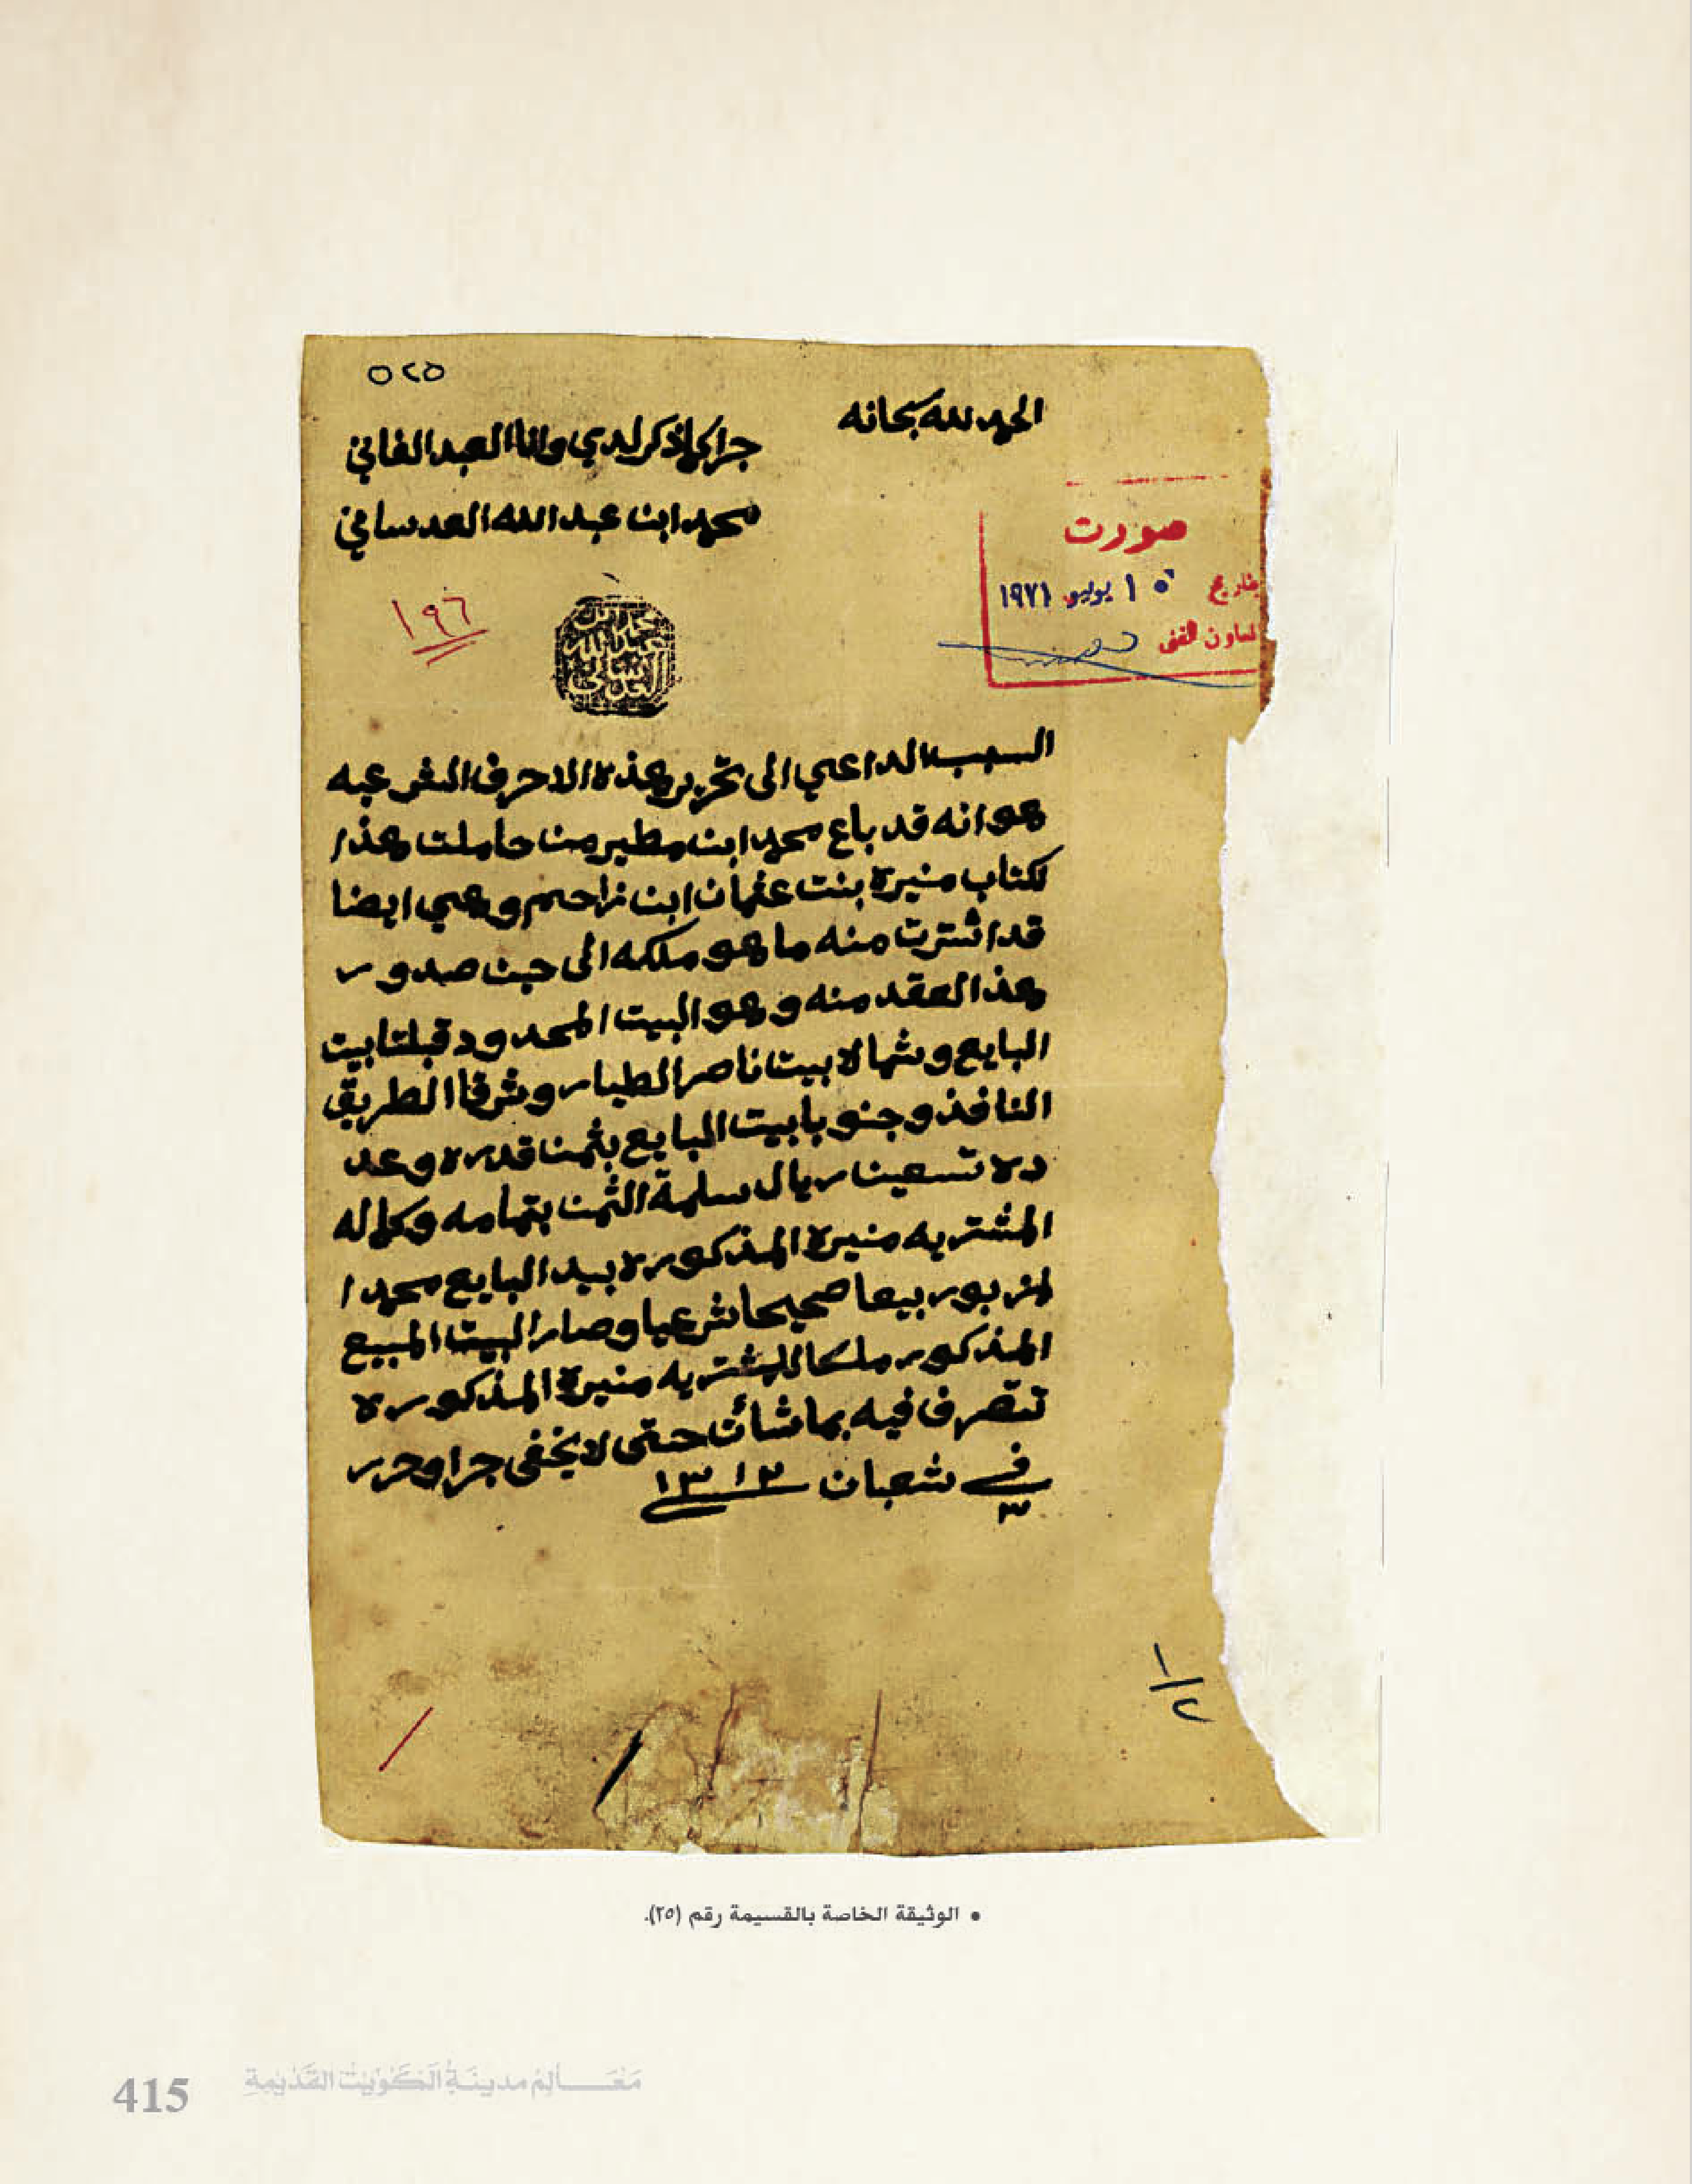 ٥٢٥
الحمد لله سبحانه
جرا كما ذكر لدي وانا العبد الفاني
محمد ابن عبد الله العدساني
صورت
بتاريخ ١٥ يوليو ١٩٧١
المعاون الفني
١٩٦
محمد ابن
عبد الله
العدساني
السبب الداعي الى تحرير هذه الاحرف الشرعيه
هو انه قد باع محمد ابن مطير من حاملت هذا
لكتاب منيرة بنت عثمان ابن مزاحم وهي ايضا
قد اشترت منه ما هو ملكه الى حين صدور
هذا العقد منه وهو البيت المحدود قبلتا بيت
البايع وشمالا بيت ناصر الطيار وشرقا الطريق
النافذ وجنوبا بيت البايع بثمن قدره وعد
ده تسعين ريال سلمة الثمن بتمامه وكماله
المشتريه منيرة المذكوره بيد البايع محمد ا
لمزبور بيعا صحيحا شرعيا وصار البيت المبيع
المذكور ملكا للمشتريه منيرة المذكوره
تتصرف فيه بما شأت حتى لا يخفى جرا وحرر
في ٣ شعبان ١٣١٣
١/٢
• الوثيقة الخاصة بالقسيمة رقم (٢٥).
415 مَعَالِمُ مدينَةِ الكُوَيْتِ القَدِيمَةِ